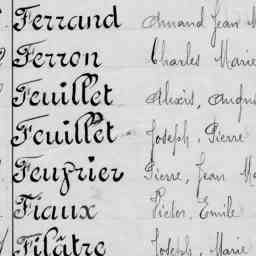 Ferrand Amand Jean M
Ferron Charles Marie
Feuillet Alexis, Augus
Feuillet Joseph, Pierre
Feuprier Pierre, Jean Ma
Fiaux Victor, Emile
Filâtre Joseph, Marie